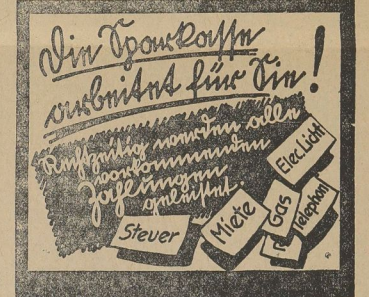 Die Sparkasse
arbeitet für Sie!
Rechtzeitig werden alle
vorkommenden
Zahlungen
geleistet.
Steuer
Miete
Gas
Elec. Licht
Telephon